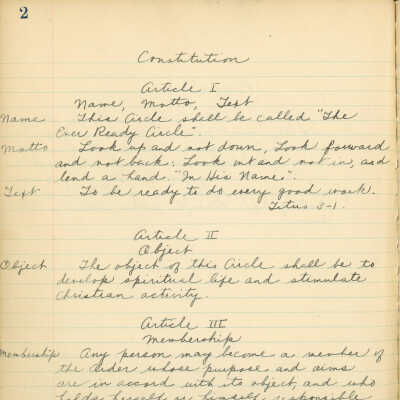 2
Constitution
Article I
Name, Motto, Text
Name This Circle shall be called "The
Ever Ready Circle".
Motto Look up and not down, Look forward
and not back: Look out and not in, and
lend a hand. "In His Name".
Text To be ready to do every good work.
Titus 3-1.
Article II
Object
Object The object of this Circle shall be to
develop spiritual life and stimulate
Christian activity.
Article III
Membership
Membership Any person may become a member of
the order whose purpose and aims
are in accord with its object, and who
holds herself or himself responsible